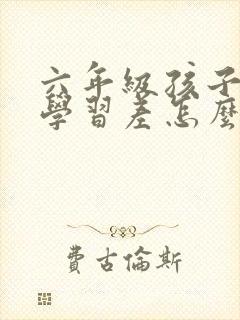 六年級孩子
學習差怎麼
費古倫斯